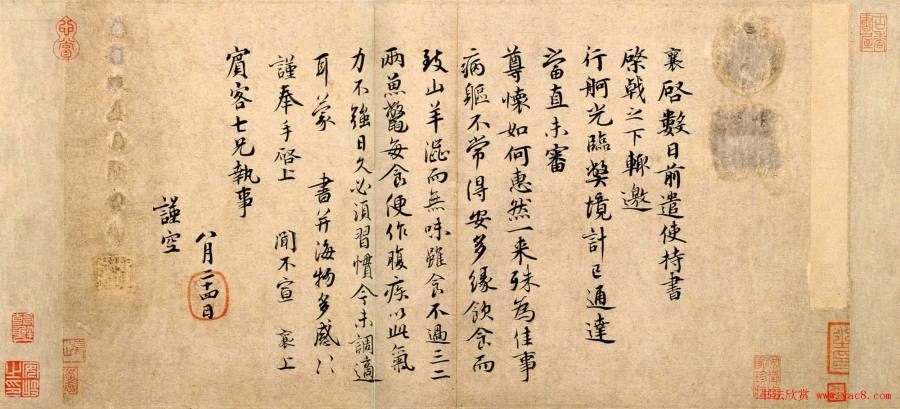 襄啓數日前遣使持書
棨戟之下輙邀
行舸光臨弊境計已通達
當直未審
尊懷如何惠然一来殊為佳事
病軀不常得安多縁飲食而
致山羊澀而無味雖食不過三二
兩魚鱉每食便作腹疾以此氣
力不強日久必須習慣今未調適
耳蒙 書并海物多感〻
謹奉手啓上 聞不宣 襄上
賓客七兄執事
八月二十四日
謹空
书法欣赏 www.yac8.com